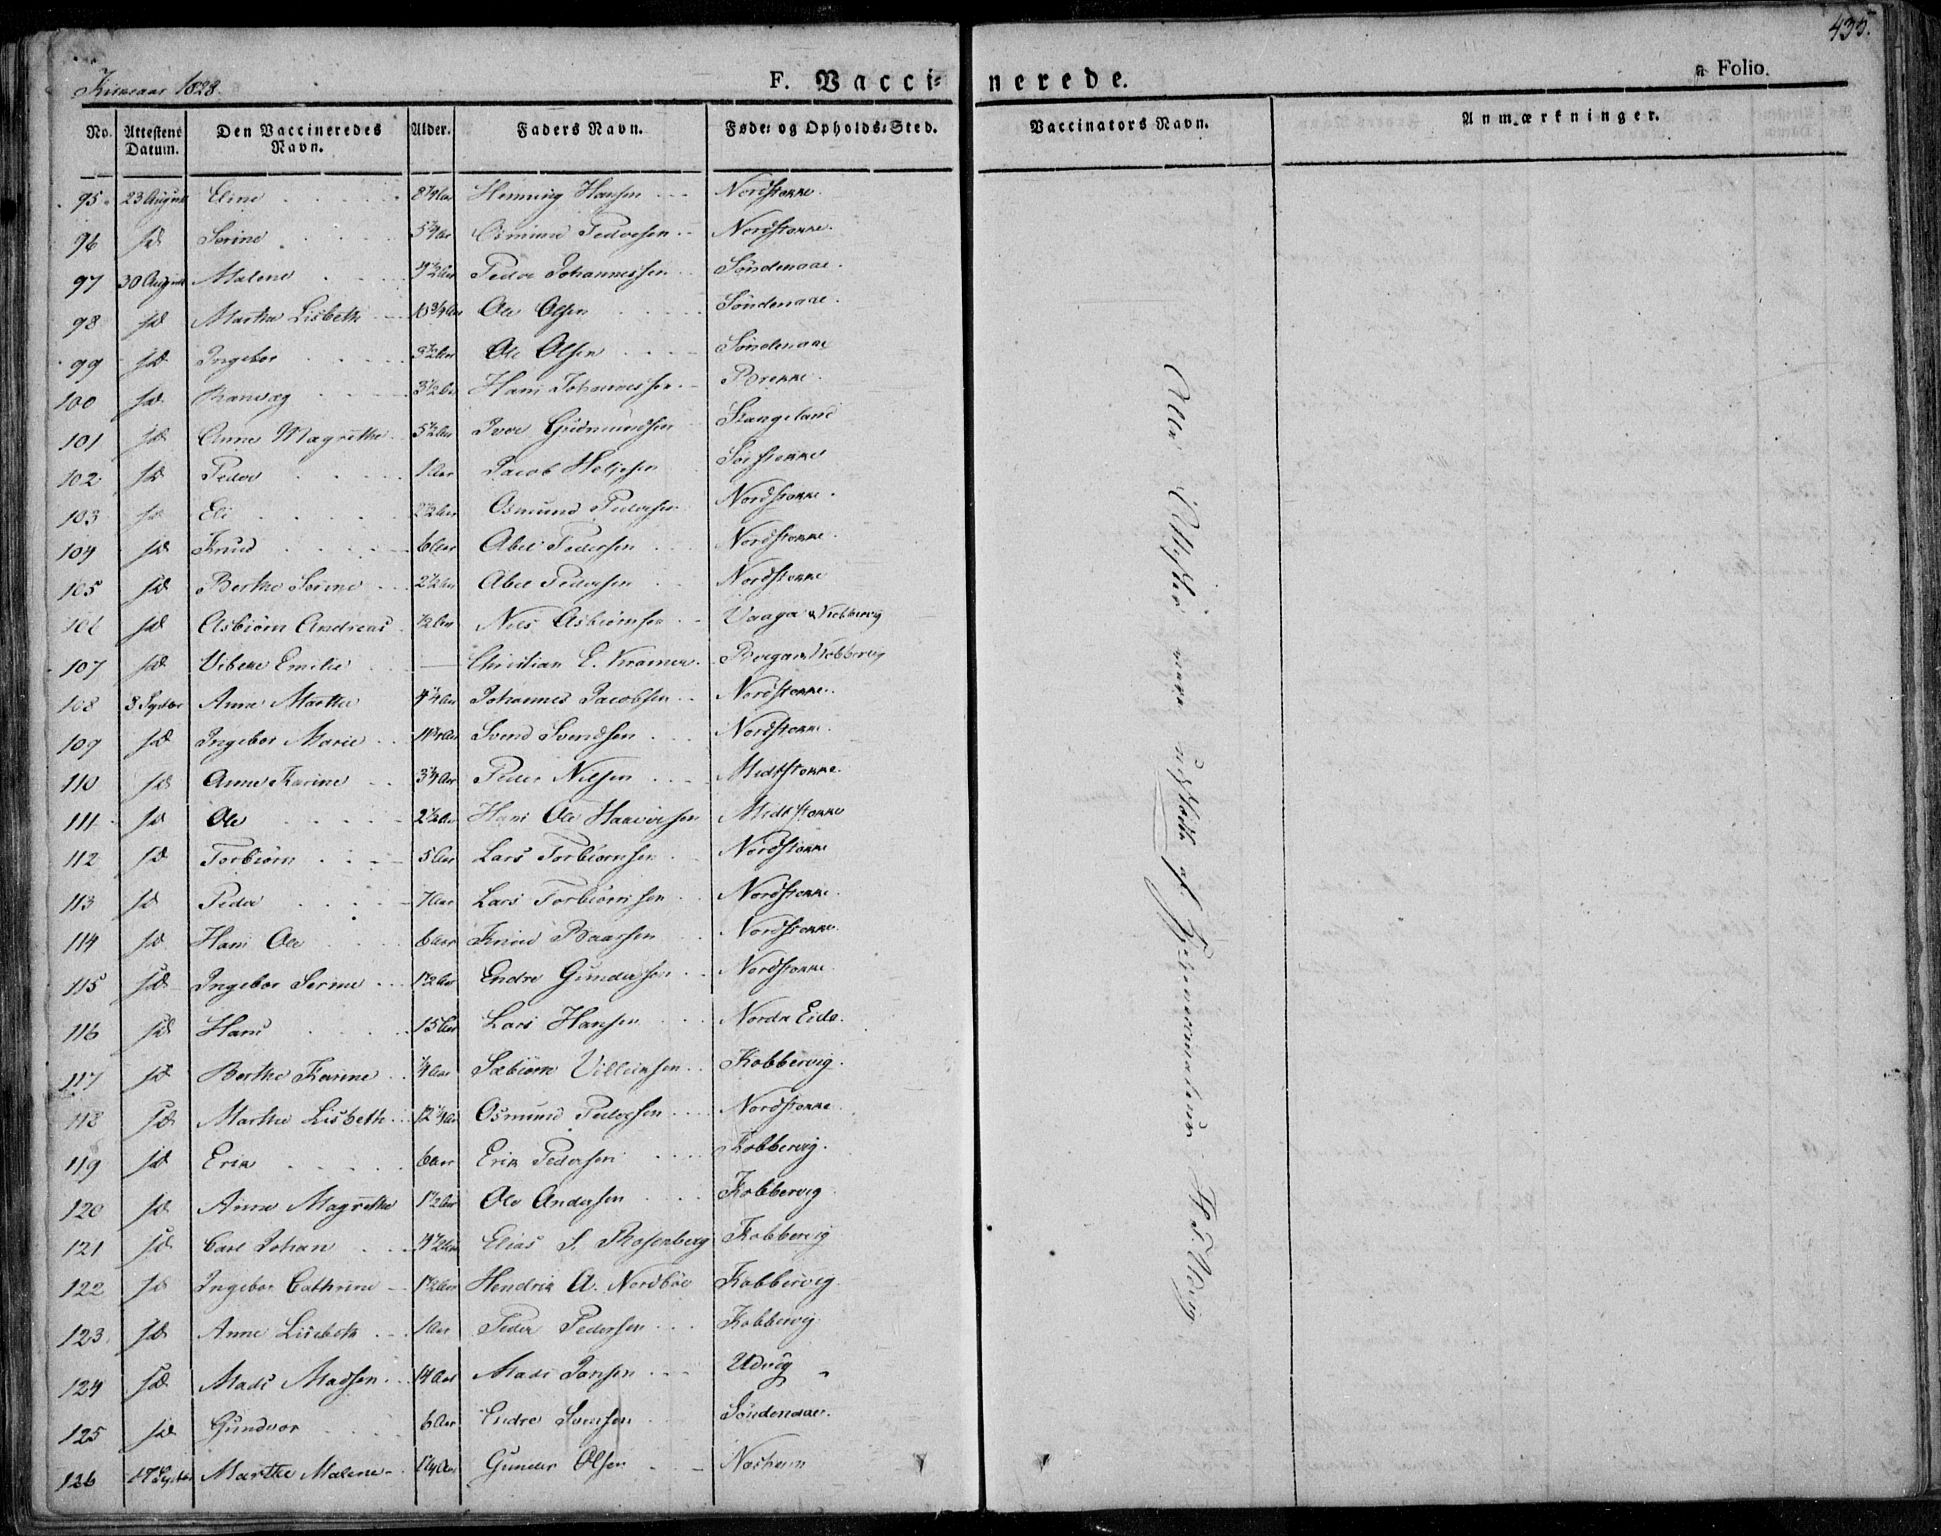 435.
Kirkeaar 1828.
F. Vacci=
nerede.
a Folio.
No. Attestens Datum. Den Vaccineredes Navn. Alder. Faders Navn. Føde= og Opholds=Sted. Vaccinators Navn. Anmærkninger.
95. 23 August Eline 8 1/4 Aar Henning Hansen Nordstokke.
96 id Serine Pedersen Nordstokke.
97 30 August Malene Peder Johannessen Søndenaae.
98 id Marthe Lisbeth 10 3/4 Aar Ole Olsen Søndenaae.
99 id Ingebor 3 1/2 Aar Ole Olsen Søndenaae
100 id 3 1/2 Aar Hans Johannessen Brekke.
101 id Anne Magrethe 5 1/2 Aar Iver Gudmundsen Stangeland
102 id Peder 1 Aar Jacob Heljesen Sørstokke
103 id Eli 2 1/2 Aar Osmund Pedersen Nordstokke.
104 id Knud 6 Aar Abel Pedersen Nordstokke.
105 id Berthe Serine 2 1/2 Aar Abel Pedersen Nordstokke
106 id Asbiørn Andreas 1/2 Aar Nils Asbiørnsen Vaage Kobbervig
107 id Vibeke Emilie — Christian E. Kramer. Kobbervig
108 3 Septbr Anne Marthe 4 1/4 Aar Johannes Jacobsen Nordstokke.
109 id Ingebor Marie Svend Svendsen Nordstokke.
110 id Anne Karine 3 1/4 Aar Peder Nilsen Midtstokke.
111 id Ole 2 1/2 Aar Hans Ole Haaversen Midtstokke
112 id Torbiørn 5 Aar Lars Torbiørnsen Nordstokke
113 id Peder 7 Aar Lars Torbiørnsen Nordstokke.
114 id Hans Ole 6 Aar Knud Baarsen Nordstokke.
115 id Ingebor Serine 1 1/2 Aar Endre Gundersen Nordstokke.
116 id Hans 15 Aar Lars Hansen Nordre Eide.
117 id Berthe Karine 1/4 Aar Sæbiørn Villumsen Kobbervig.
118 id Marthe Lisbeth 12 1/4 Aar Osmund Pedersen Nordstokke
119 id Erik 6 Aar Erik Pedersen Kobbervig.
120 id Anne Magrethe 1 1/2 Aar Ole Andersen Kobbervig
121 id Carl Johan 4 1/2 Aar Elias S. Rosenberg Kobbervig
122 id Ingebor Cathrine 1 1/2 Aar Hendrik A. Nordbøe Kobbervig.
123. id Anne Lisebeth 1 Aar Peder Pedersen Kobbervig
124 id Mads Madsen 14 Aar Mads Jansen Udvig
125 id Gundvor 6 Aar Endre Svensen Søndenaae.
126 17 Septbr Marthe Malene 1 1/4 Aar Gunder Olsen Næsheim
Alle Attester ere udstædte af